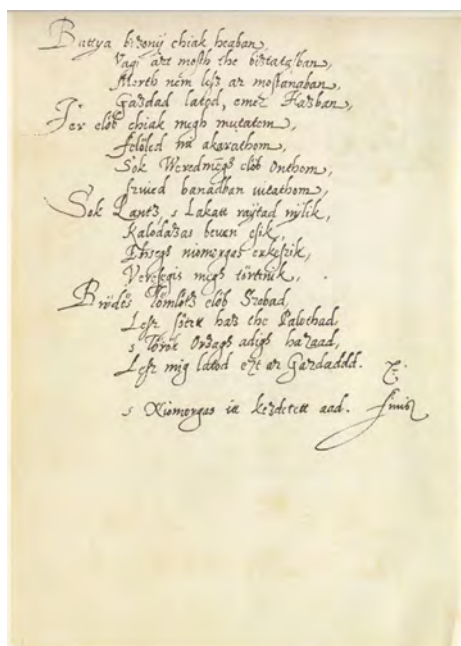 Battya bizonij chiak heaban,
Vagi azt mosth the biztatasban,
Merth nem lesz az mostanaban,
Gazdad latod, emez Hazban,
Jer elöb chiak megh mutatom,
felöled na akarathom,
Sok Weredmegh elöb Onthom,
sziued banadban uitathom,
Sok Lantz, s Lakatt raÿtad nÿlik,
Kalodazas beuen esik,
Ehsegh niomorgas erkezik,
Veresegis megh törtinik,
Brödös Tömlötz elöb Szobad,
Lesz sötet haz the Palothad,
s Török Orszagh adigh hazaad,
Lesz mig latod ezt az Gazdadd.
s Niomorgas itt kezdetett aad.
finis